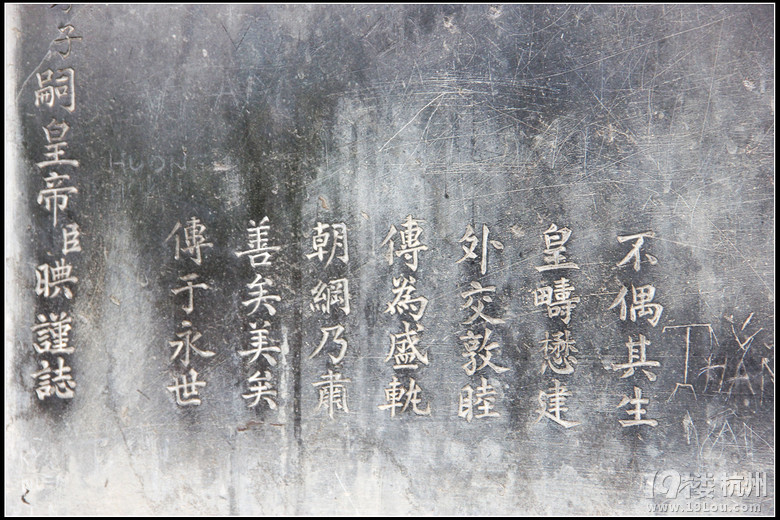 不偶其生
皇疇懋建
外交敦睦
傳為盛軌
朝綱乃肅
善矣美矣
傳于永世
子嗣皇帝臣晪謹誌
HUONG
THÚY
THAN
19楼杭州
www.19lou.com